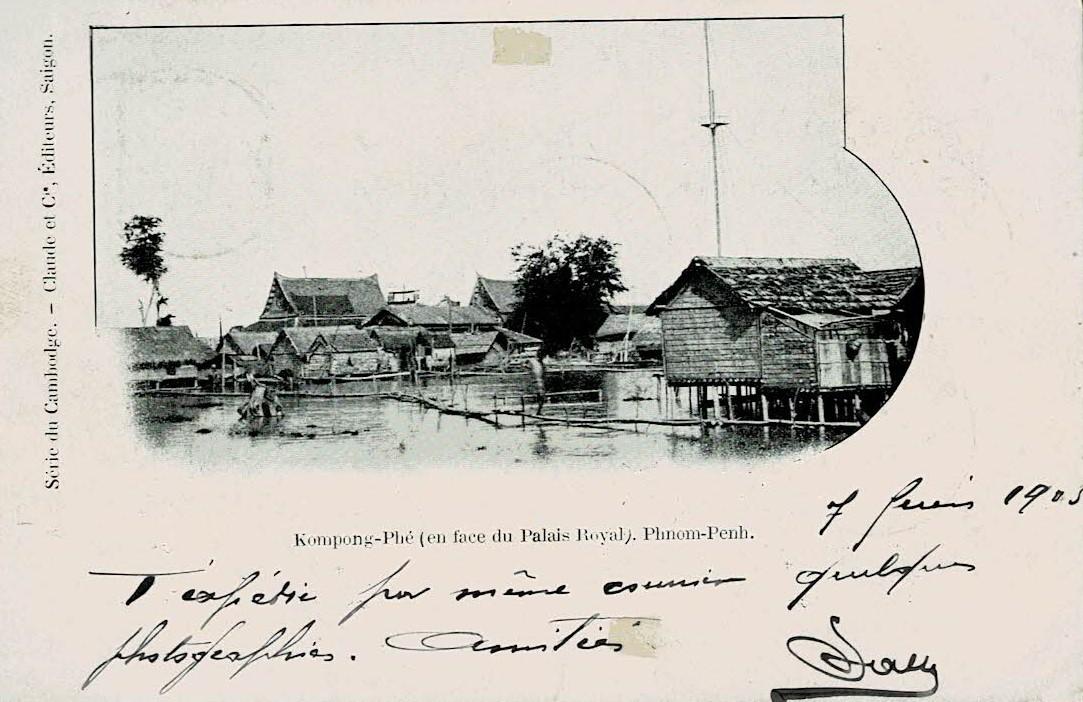 Série du Cambodge. — Claude et Cie, Éditeurs, Saigon.
Kompong-Phé (en face du Palais Royal). Phnom-Penh.
7 1903
T'expédie par même courrier quelques
photographies. Amitiés